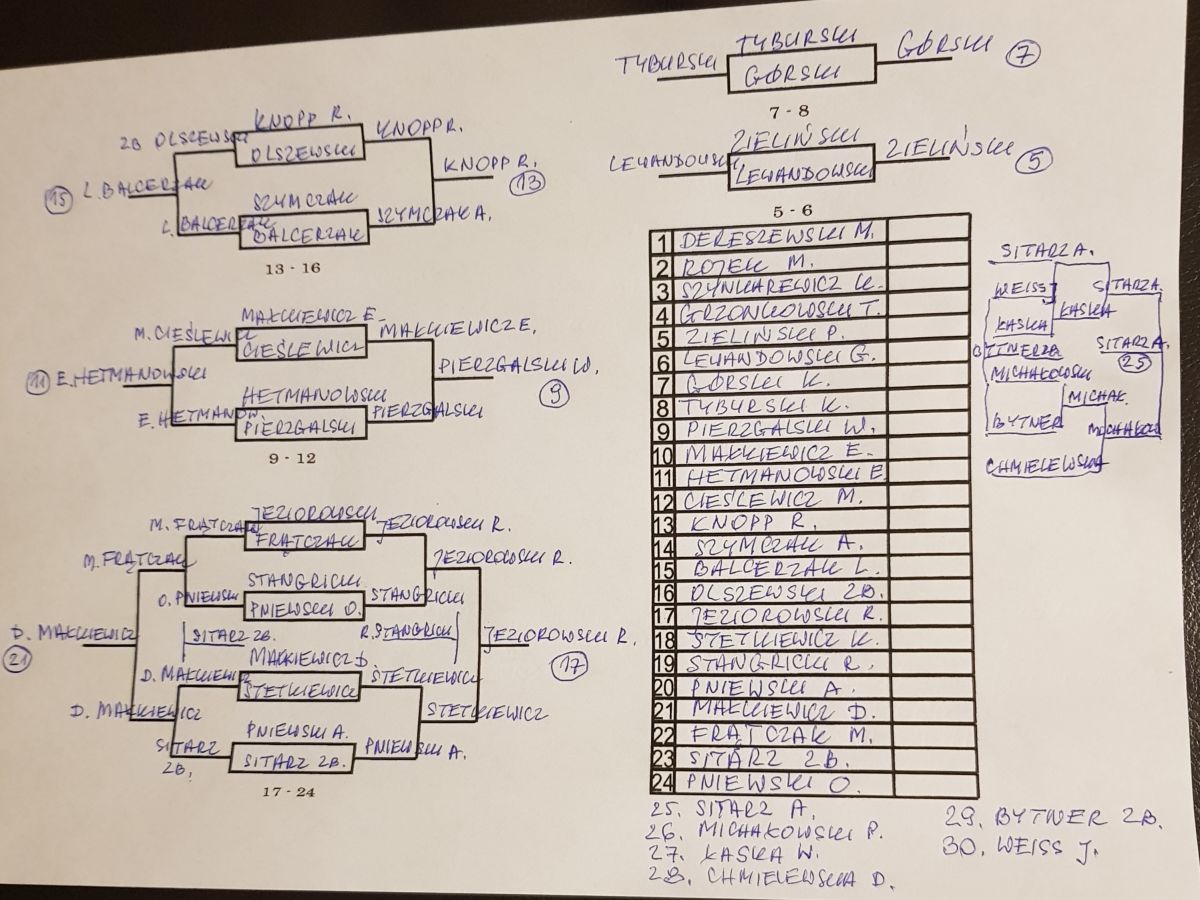 TYBURSKI
TYBURSKI
GÓRSKI
GÓRSKI
7
7 - 8
LEWANDOWSKI
ZIELIŃSKI
LEWANDOWSKI
ZIELIŃSKI
5
5 - 6
ZB OLSZEWSKI
KNOPP R.
OLSZEWSKI
KNOPP R.
KNOPP R.
13
15
L. BALCERZAK
L. BALCERZAK
SZYMCZAK
BALCERZAK
SZYMCZAK A.
13 - 16
M. CIEŚLEWICZ
MAKKIEWICZ E.
CIEŚLEWICZ
MAKKIEWICZ E.
PIERZGALSKI W.
9
11
E. HETMANOWSKI
E. HETMANOW.
HETMANOWSKI
PIERZGALSKI
PIERZGALSKI
9 - 12
M. FRĄTCZAK
M. FRĄTCZAK
JEZIOROWSKI
FRĄTCZAK
JEZIOROWSKI R.
JEZIOROWSKI R.
O. PNIEWSKI
STANGRICKI
PNIEWSKI O.
STANGRICKI
D. MAKKIEWICZ
21
SITARZ ZB.
R. STANGRICKI
JEZIOROWSKI R.
17
D. MAKKIEWICZ
MAKKIEWICZ D.
STETKIEWICZ
STETKIEWICZ
D. MAKKIEWICZ
STETKIEWICZ
SITARZ ZB.
PNIEWSKI A.
SITARZ ZB.
PNIEWSKI A.
17 - 24
1 DERESZEWSKI M.
2 ROJEK M.
3 SZYNKAREWICZ K.
4 GRZONKOWSKI T.
5 ZIELIŃSKI P.
6 LEWANDOWSKI G.
7 GÓRSKI K.
8 TYBURSKI K.
9 PIERZGALSKI W.
10 MAKKIEWICZ E.
11 HETMANOWSKI E
12 CIEŚLEWICZ M.
13 KNOPP R.
14 SZYMCZAK A.
15 BALCERZAK L.
16 OLSZEWSKI ZB.
17 JEZIOROWSKI R.
18 STETKIEWICZ K.
19 STANGRICKI R.
20 PNIEWSKI A.
21 MAKKIEWICZ D.
22 FRĄTCZAK M.
23 SITARZ ZB.
24 PNIEWSKI O.
25. SITARZ A.
26. MICHAKOWSKI P.
27. KASKA W.
28. CHMIELEWSKA D.
29. BYTNER ZB.
30. WEISS J.
SITARZ A.
WEISS
KASKA
KASKA
SITARZA.
SITARZ A.
25
MICHAKOWSKI
MICHAK.
BYTNER
CHMIELEWSKA